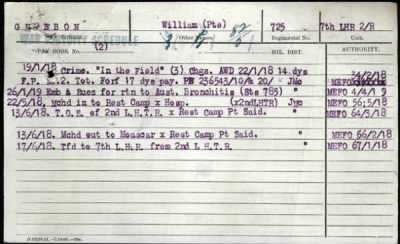 William (Pte) 725 7th LHR 2/R
Other Names Regimental No. Unit
PAY BOOK No. (2) MIL. DIST. AUTHORITY.
15/1/18 Crime. "In the Field" (3) Chgs. AWD 22/1/18 14.dys
F.P. 2. Tot. Forf 17 dys pay. PN 236543/10/ 20/ JMo MEFO
26/1/19 Emb Suez for rtn to Aust. Bronchitis (Sts 785) " MEFO 4/4/1 9
22/5/18 Mchd in to Rest Camp x Hosp. (x2ndLHTR) JMo MEFO 56/5/18
13/6/18. T.O.S. of 2nd L.H.T.R. x Rest Camp Pt Said. " MEFO 64/3/18
13/6/18. Mchd out to Moascar x Rest Camp Pt Said. " MEFO 66/2/18
17/6/18. Tfd to 7th L.H.R. from 2nd L.H.T.R. " MEFO 67/1/18